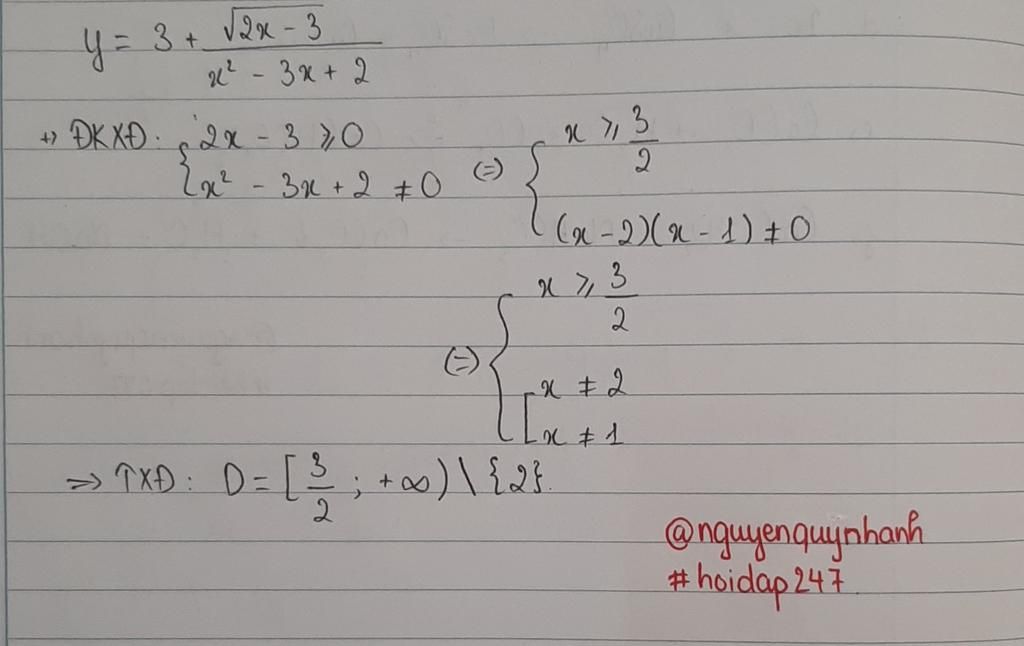 y = 3 + √(2x - 3) / (x² - 3x + 2)
+) ĐKXĐ: { 2x - 3 ⩾ 0 ; x² - 3x + 2 ≠ 0 (=) { x ⩾ 3/2 ; (x - 2)(x - 1) ≠ 0
(=) { x ⩾ 3/2 ; [ x ≠ 2 ; x ≠ 1
=> TXĐ: D = [3/2 ; +∞) \ {2}.
@nguyenquynhanh
#hoidap247